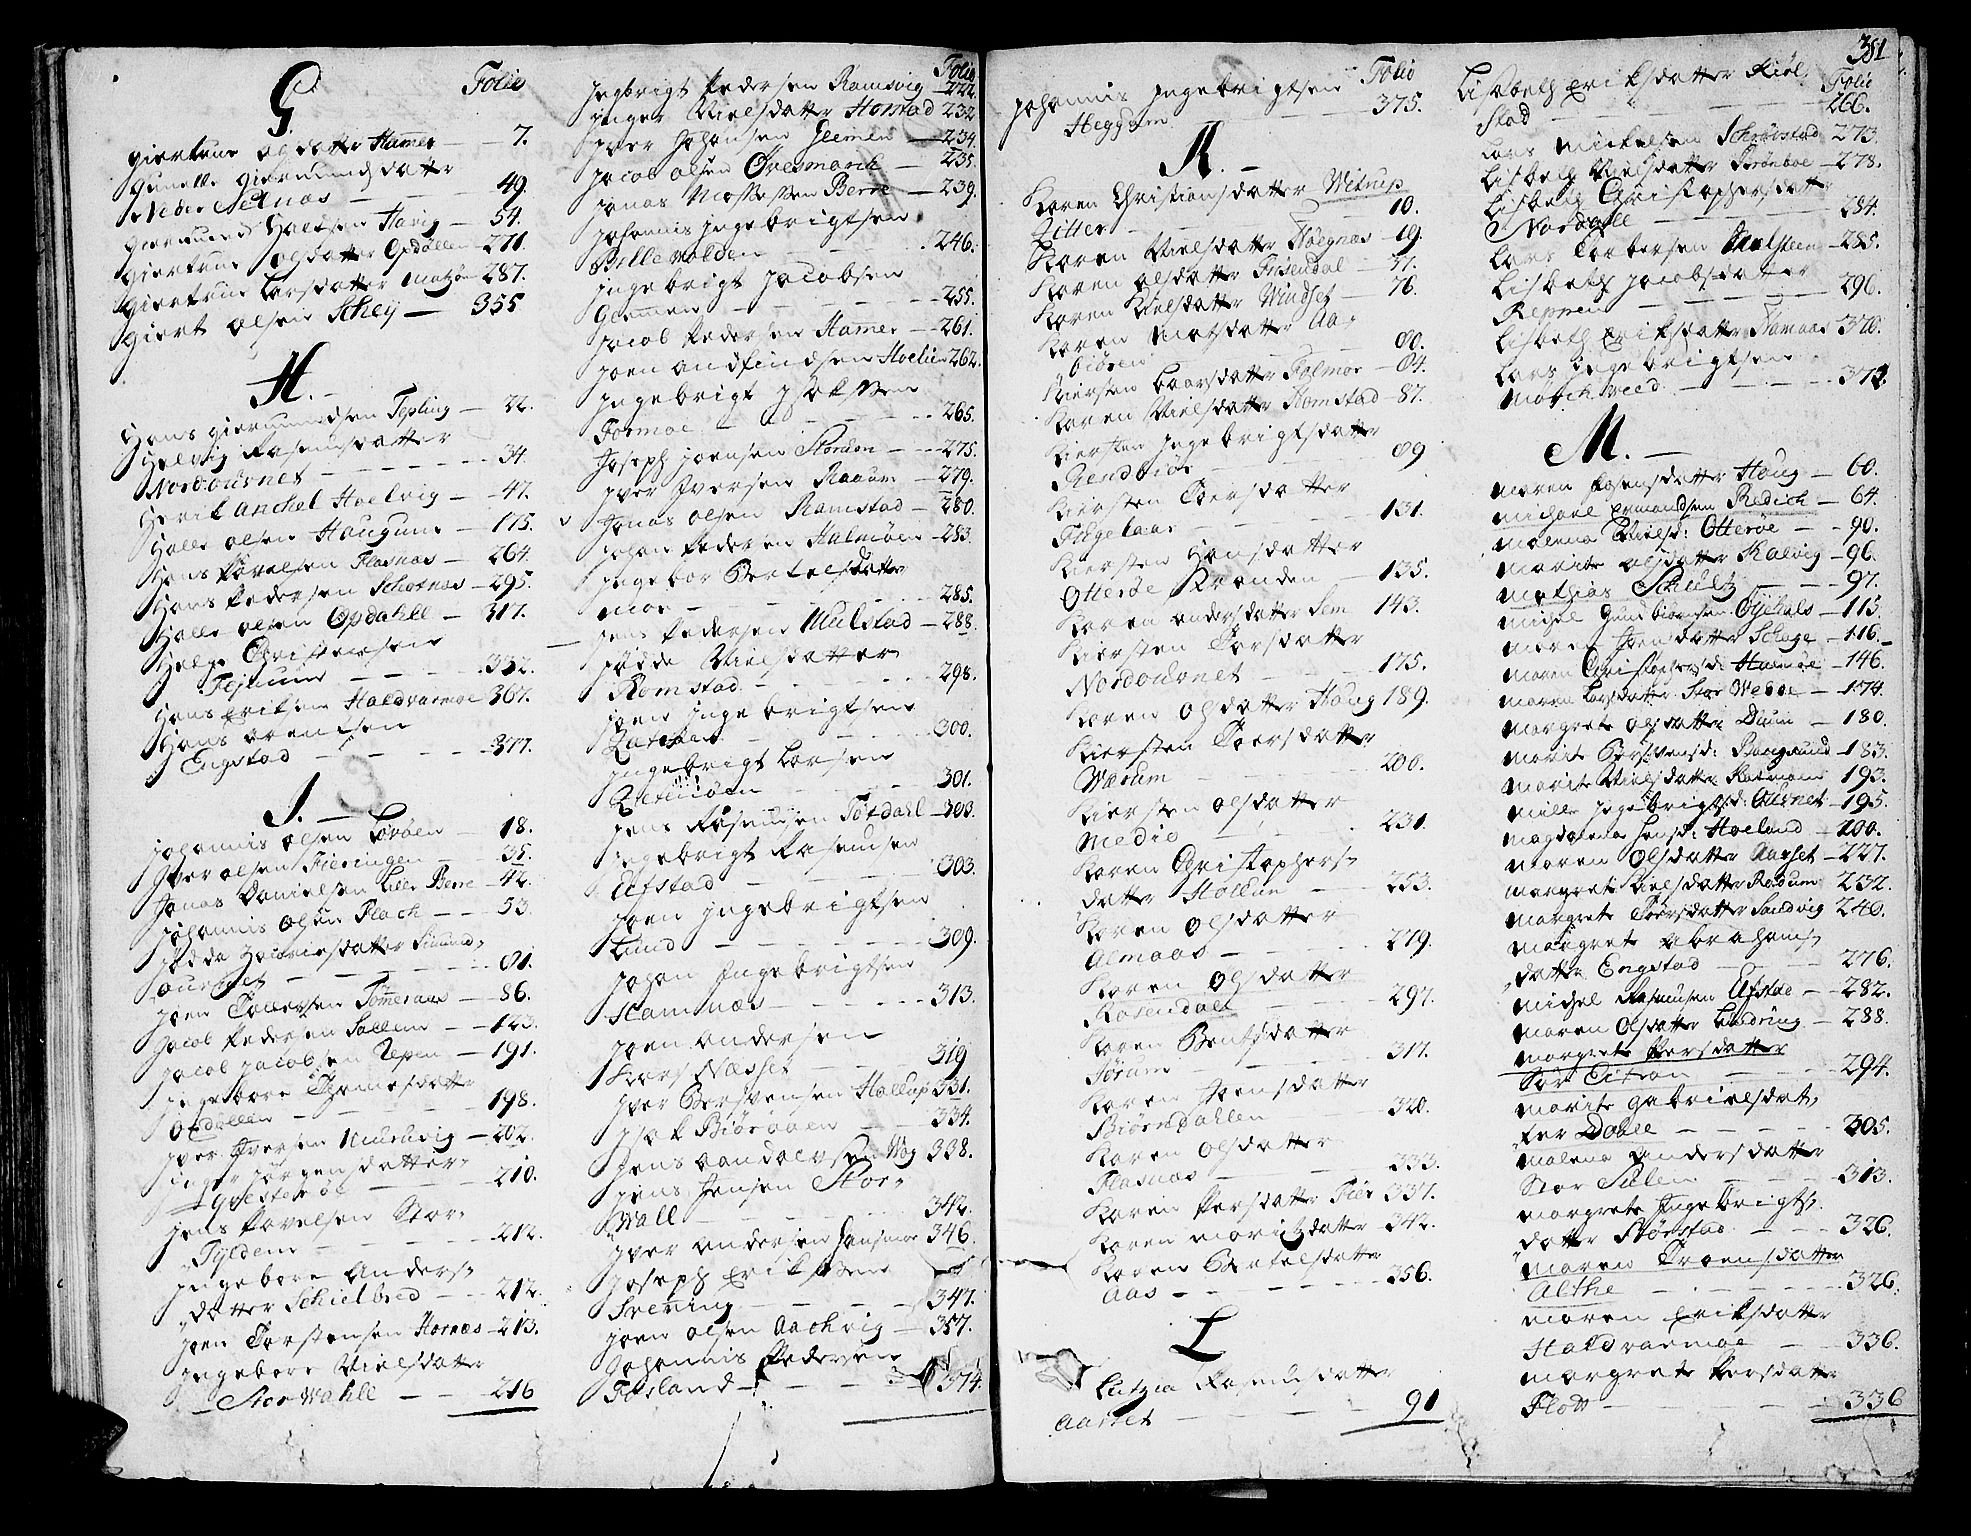 G.
Folio
Giertrue Olsdatter Hamer — 7.
Gunelle Giermundsdatter
Neder Setnæs — 49.
Giermund Haldsen Havig — 54.
Giertrue Olsdatter Opdøllen — 271.
Giertrue Larsdatter — 287.
Giert Olsen Schey — 355
H.
Hans Giermundsen Tepling — 22.
Helvig Rasmusdatter
Nordournet — 34.
Henrik Anchel Hoelvig — 47.
Halle Olsen Haugum — 175.
Hans Povelsen Flasnæs — 264.
Hans Pedersen Schotnæs — 295.
Halle Olsen Opdahll — 317.
Helge Christensen
— 332.
Hans Eriksen Haldvarmoe 367.
Hans Arentsen
Engstad — 377.
I.
Johannis Olsen Lovøen — 18.
Iver Olsen Fieringen — 35.
Jonas Danielsen Lille Berre — 42.
Johannis Olsen Flach — 53.
Jødde Zachrisdatter
— 81.
Joen Tollevsen Tømeraas — 86.
Jacob Pedersen Sallem — 123.
Jacob Jacobsen Repen — 191.
Ingebore Thomesdatter
Opdøllen — 198.
Iver Iversen — 202.
Inger Jørgensdatter
— 210.
Jens Povelsen Stor-
Fylden — 212.
Ingebore Anders-
datter Schielbred — 212.
Joen Torstensen Hornæs — 213.
Ingebore Nielsdatter
Stor Wahll — 216
Folio
Ingbrigt Pedersen Ramsvig 222
Inger Nielsdatter Homstad 232
Iver Johansen Glemen — 234.
Jacob Olsen Ovesmarch — 235.
Jonas Berre — 239.
Johannis Ingebrigtsen
Billevolden — 246.
Ingebrigt Jacobsen
Glemen — 255.
Jacob Pedersen Hamer — 261.
Joen Andfindsen Hoelien 262.
Ingebrigt Isaksen
Formoe — 265.
Joseph Joensen Storden — 275.
Iver Iversen Raaum — 279.
Jonas Olsen Ramstad — 280.
Johan Pedersen Halmøen — 283.
Ingebor Bertelsdatter
Moe — 285.
Jens Pedersen Mulstad — 288.
Jødde Nielsdatter
Romstad — 298.
Joen Ingebrigtsen
— 300.
Ingebrigt Larsen
— 301.
Jens Rasmusen Totdahl — 303.
Ingebrigt Rasmusen
Ufstad — 303.
Joen Ingebrigtsen
Lund — 309.
Johan Ingebrigtsen
Hamnæs — 313.
Joen Andersen
Kors Næsset — 319
Iver Bersvensen Hallup 331.
Isak Biøraaen — 334.
Jens Wog 338.
Jens Jensen Stor-
Wall — 342.
Iver Andersen — 346.
Joseph Eriksen
Svenning — 347.
Joen Olsen Aachvig — 357.
Johannis Pedersen
Fosland — 374.
381
Folio
Johannis Ingebrigtsen
Heggem — 375.
K.
Karen Christiansdatter Witrup
Zitter — 10.
Karen Nielsdatter Høegnæs — 19.
Karen Olsdatter Friisendal — 31.
Karen Nielsdatter Windset — 76.
Karen Matsdatter Aa-
biøren — 80.
Kiersten Laarsdatter Folmoe — 84.
Karen Nielsdatter Homstad — 87.
Kiersten Ingebrigtsdatter
— 89
Kiersten Toersdatter
Flegelaar — 131.
Kiersten Hansdatter
Otterøe Stranden — 135.
Karen Andersdatter Sem 143.
Kiersten Torsdatter
Nordouvnet — 175.
Karen Olsdatter Houg 189.
Kiersten Toersdatter
Warum — 200.
Kiersten Olsdatter
Medie — 231.
Karen Christophers-
datter — 253.
Karen Olsdatter
Almaas — 279.
Karen Olsdatter
Rosendal — 297.
Karen Bentsdatter
Jørum — 317.
Karen Joensdatter
Biørndahlen — 320.
Karen Olsdatter
Flasnæs — 333.
Karen Persdatter Fier 337.
Karen Moritzdatter — 342.
Karen Bertelsdatter
Aas — 356.
L.
Lutzia Rasmusdatter
Aarset — 91
Folio
Lisbeth Eriksdatter
Stad — 266.
Lars Mickelsen Schrøvstad 273.
Lisbeth Nielsdatter Strønboe — 278.
Lisbeth Christophersdatter
Nordahll — 284.
Lars Torbersen — 285.
Lisbeth Jacobsdatter
Reppen — 296.
Lisbeth Eriksdatter 370.
Lars Ingebrigtsen
Mørchved — 372.
M.
Maren Joensdatter Houg — 60.
Michael Ermandsen Redich — 64.
Malena Nielsd: Otterøe — 90.
Marite Olsdatter Kalvig — 96.
Mathias Schultz — 97.
Michel Gunbiørnsen Øyehals — 115.
Maren Joensdatter Schage — 116.
Maren Christophersd: Halmøe — 146.
Maren Larsdatter Stor Webye — 174.
Margrete Olsdatter Duun — 180.
Marit Bersvensd: Bangsund — 183.
Marite Nielsdatter — 193.
Mille Ingebrigtsd: Ousnet — 195.
Magdalena Jensd: Hoeland — 200.
Maren Olsdatter Aarset — 227.
Margrete Nielsdatter Rosum 232.
Margrete Toersdatter Sandvig 240.
Margrete Abrahams-
datter Engstad — 276.
Michel Rasmusen Ufstae — 282.
Maren Olsdatter Landring — 288.
Margrete Persdatter
— 294.
Marite Gabrielsdat-
ter Dahle — 305.
Malena Andersdatter
Stor Sellen — 313.
Margrete Ingebrigts-
datter Mørstad — 326.
Maren Troensdatter
Althe — 326.
Maren Eriksdatter
Haldvarmoe — 336.
Margrete Persdatter
Flott — 336